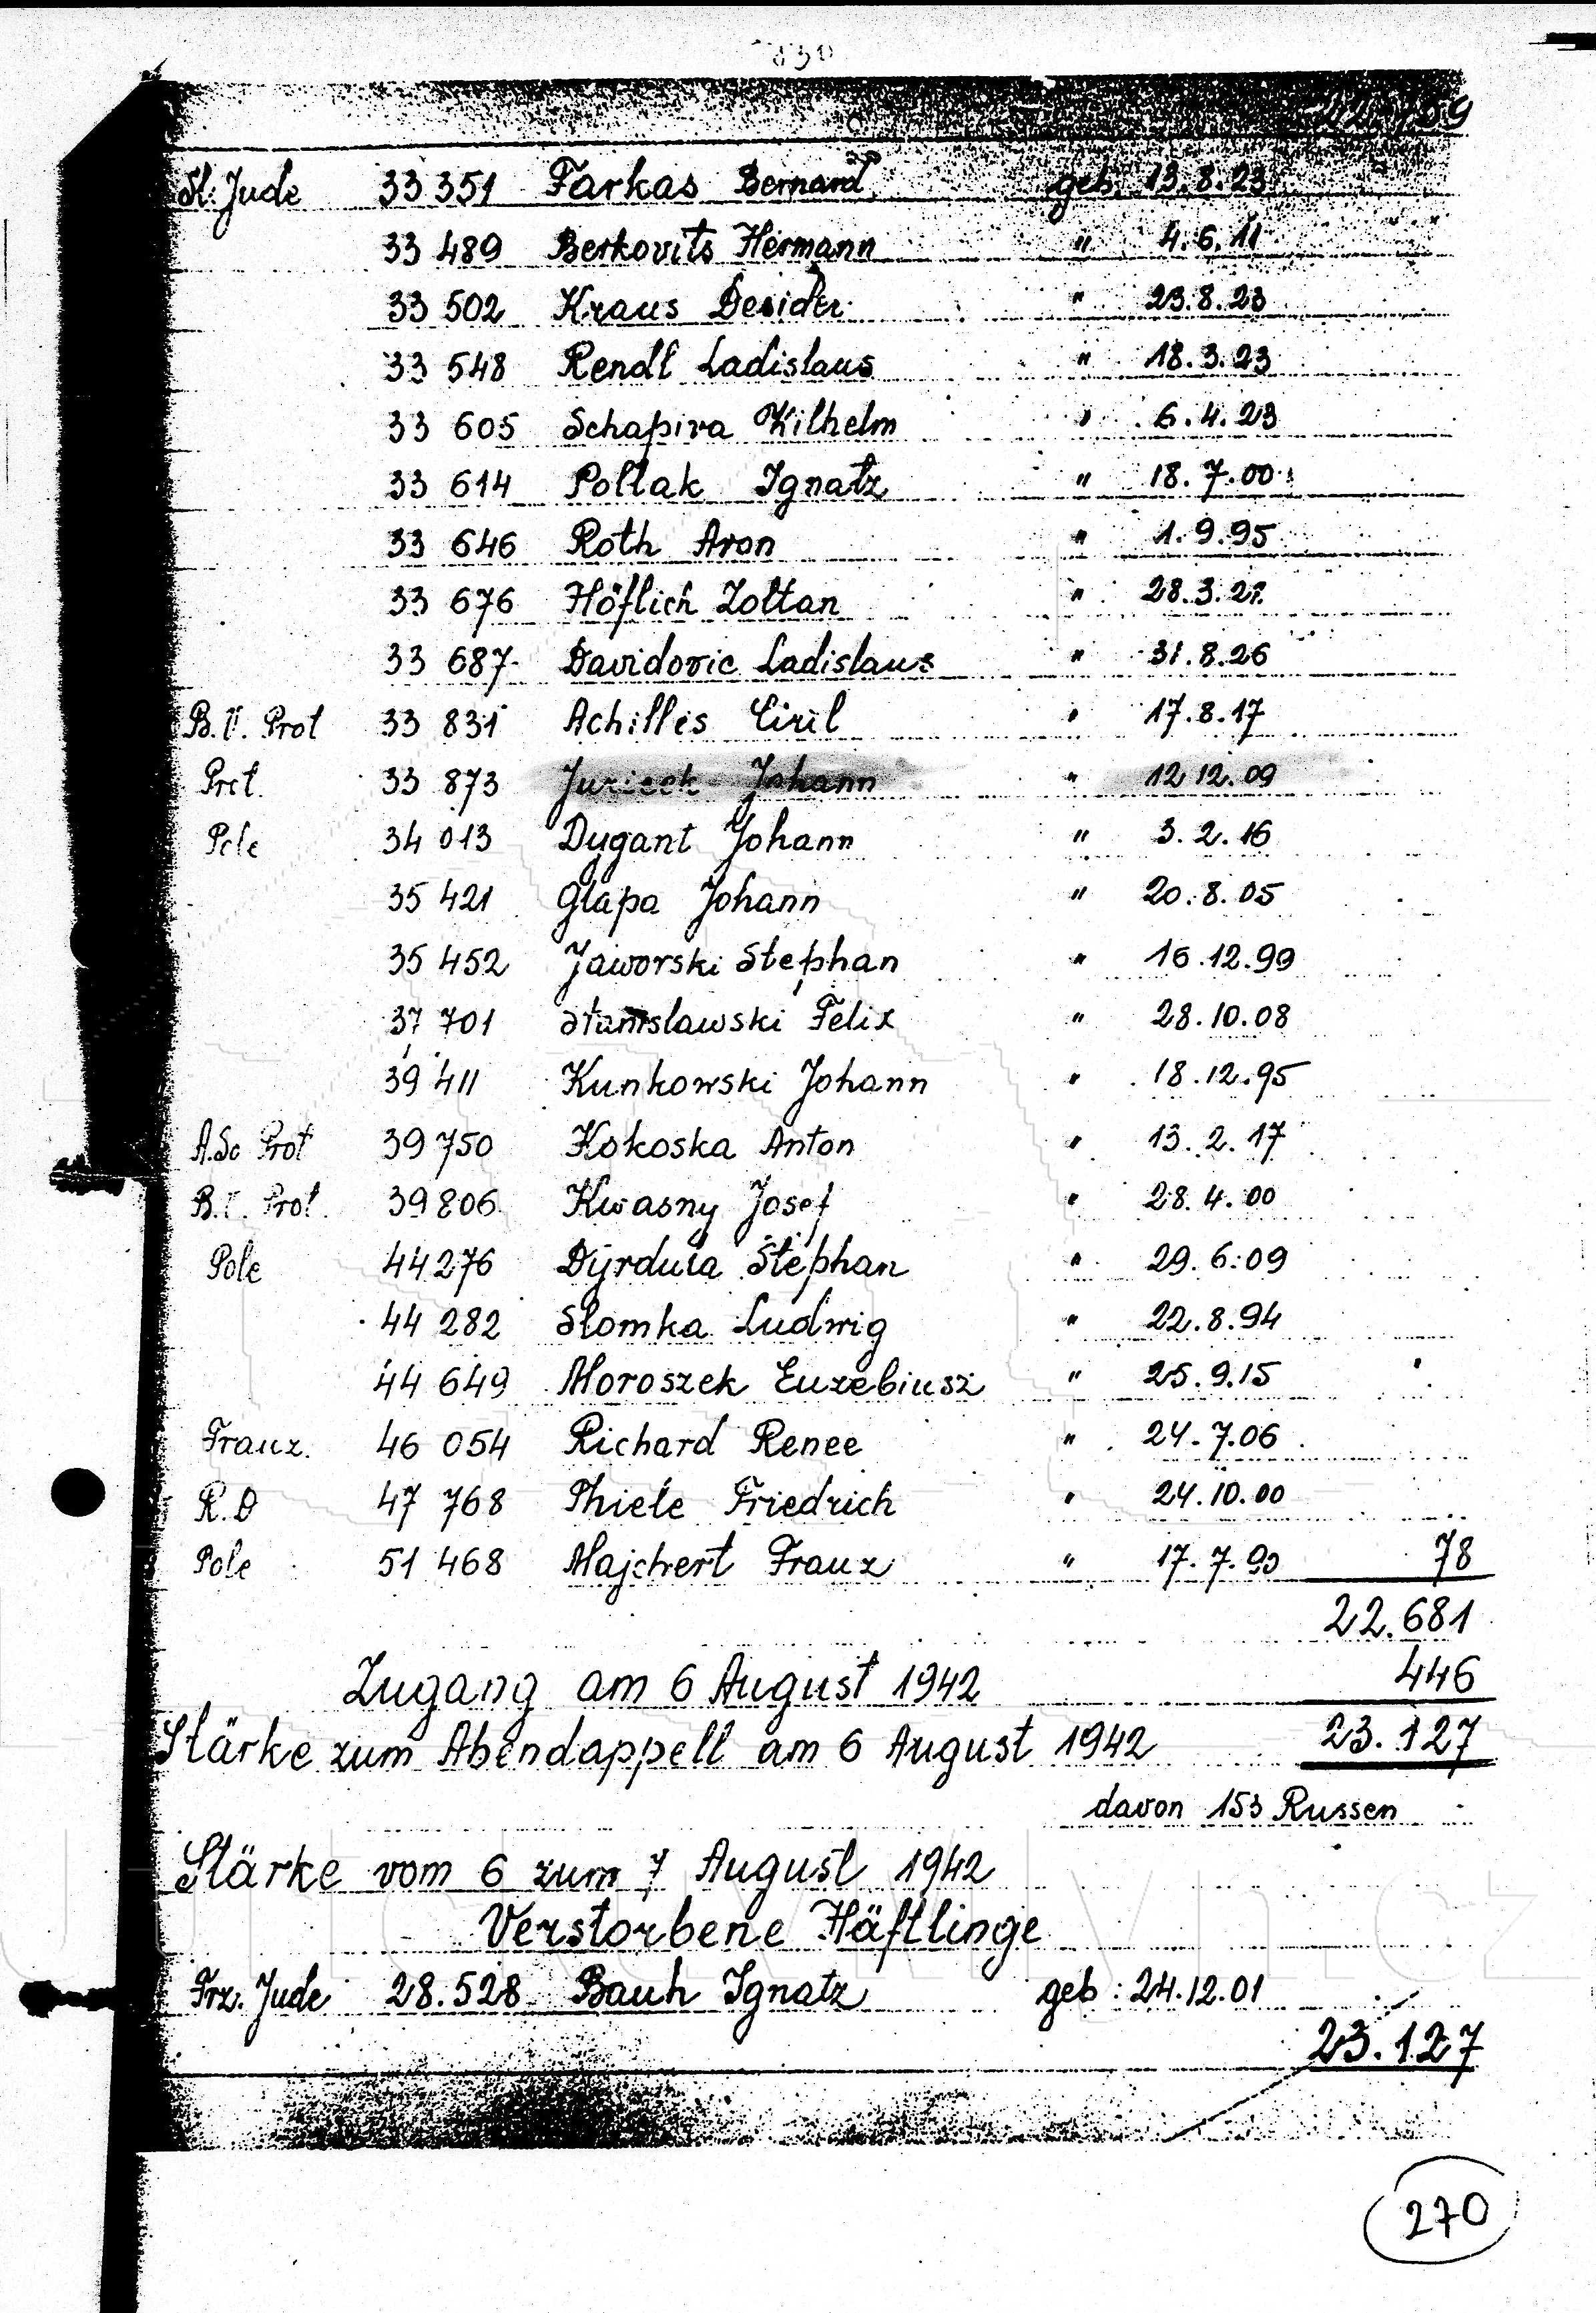 830
22.759
Sl. Jude 33 351 Farkas Bernard geb. 13.8.23
33 489 Berkovits Hermann " 4.6.11
33 502 Kraus Desider " 23.8.23
33 548 Rendl Ladislaus " 18.3.23
33 605 Schapira Wilhelm " 6.4.23
33 614 Pollak Ignatz " 18.7.00
33 646 Roth Aron " 1.9.95
33 676 Höflich Zoltan " 28.3.21
33 687 Davidovic Ladislaus " 31.8.26
B.V. Prot 33 831 Achilles Ciril " 17.8.17
Prot. 33 873 Johann " 12 12.09
Pole 34 013 Dygant Johann " 3.2.16
35 421 Glapa Johann " 20.8.05
35 452 Jaworski Stephan " 16.12.99
37 701 Stanislawski Felix " 28.10.08
39 411 Kunkowski Johann " 18.12.95
A.So Prot 39 750 Kokoska Anton " 13.2.17
B.V. Prot. 39806 Kwasny Josef " 28.4.00
Pole 44276 Dyrdula Stephan " 29.6.09
44 282 Slomka Ludwig " 22.8.94
44 649 Moroszek Euzebiusz " 25.9.15
Franz. 46 054 Richard Renee " 24.7.06
R.D 47 768 Thiele Friedrich " 24.10.00
Pole 51 468 Majchert Franz " 17.7.90 78
22.681
Zugang am 6 August 1942 446
Stärke zum Abendappell am 6 August 1942 23.127
davon 153 Russen
Stärke vom 6 zum 7 August 1942
Verstorbene Häftlinge
Frz. Jude 28.528 Bauh Ignatz geb: 24.12.01
23.127
270